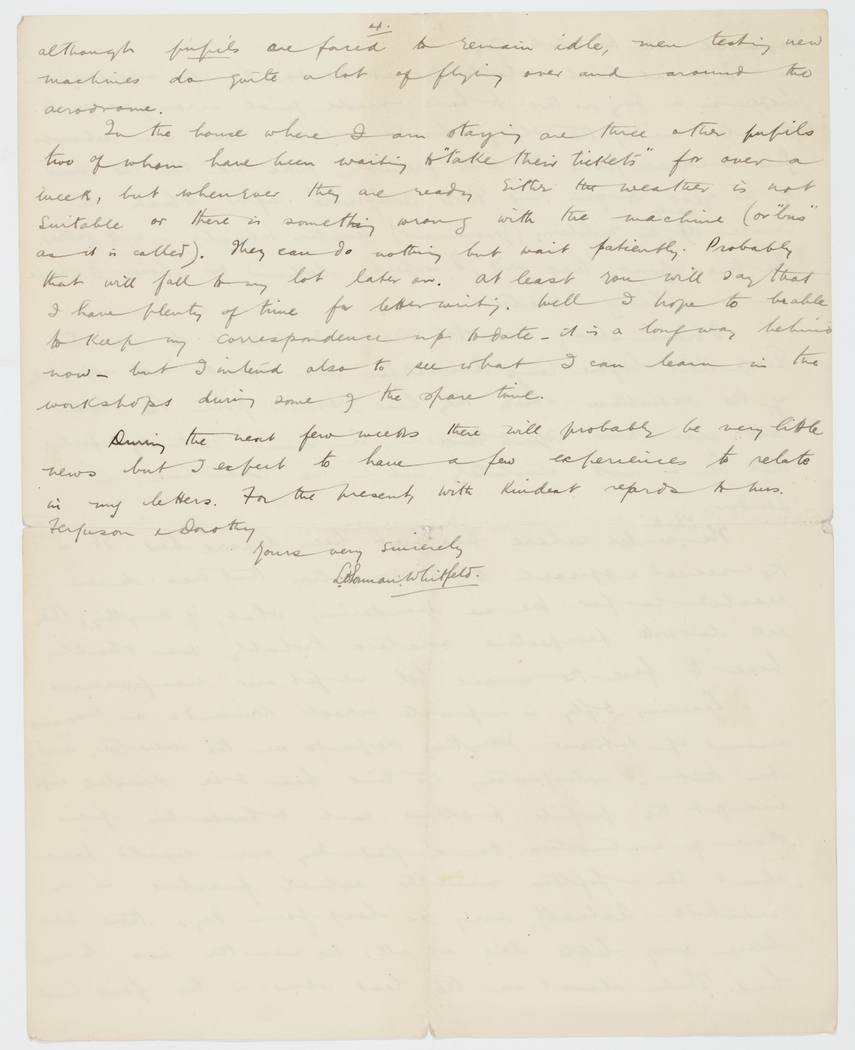 4.
although pupils are forced to remain idle, men testing new
machines do quite a lot of flying over and around the
aerodrome.
In the house where I am staying are three other pupils
two of whom have been waiting to "take their tickets" for over a
week, but whenever they are ready either the weather is not
suitable or there is something wrong with the machine (or "bus"
as it is called). They can do nothing but wait patiently. Probably
that will fall to my lot later on. At least you will say that
I have plenty of time for letter writing. Well I hope to be able
to keep my correspondence up to date - it is a long way behind
now - but I intend also to see what I can learn in the
workshops during some of the spare time.
During the next few weeks there will probably be very little
news but I expect to have a few experiences to relate
in my letters. For the present, with kindest regards to Mrs.
Ferguson & Dorothy
Yours very sincerely
Whitfeld.